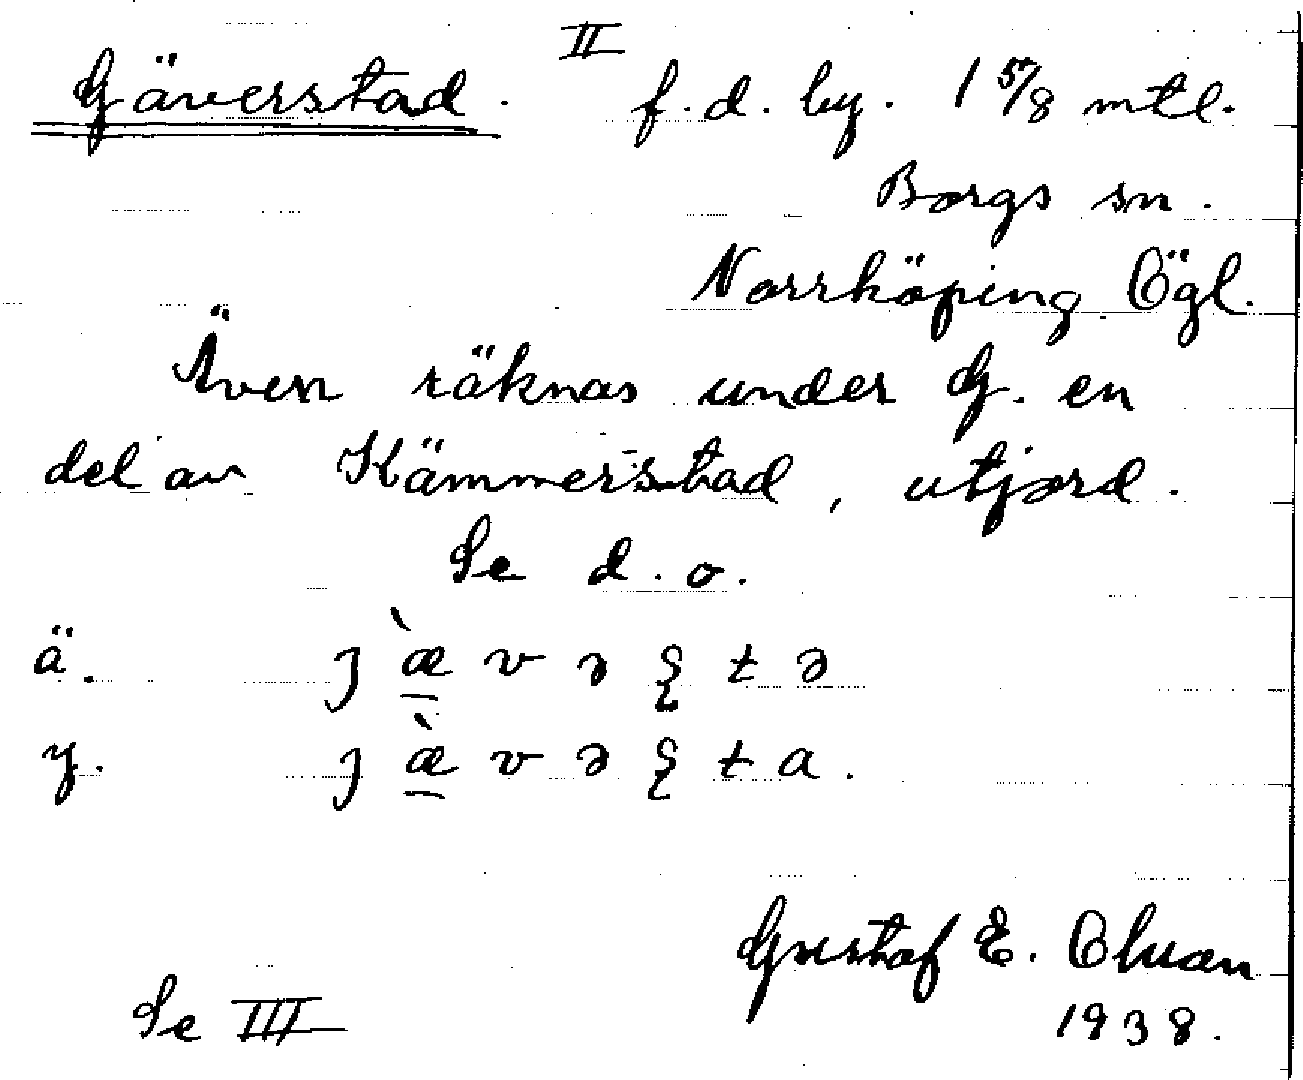 II
Gäverstad. f. d. by. 1 5/8 mtl.
Borgs sn.
Norrköping Ögl.
Även räknas under G. en
del av Kämmerstad, utjord.
Se d. o.
ä. ȷ æ̀ v ə ʂ t ə
y. ȷ æ̀ v ə ʂ t a.
Gustaf E.
Se III 1938.